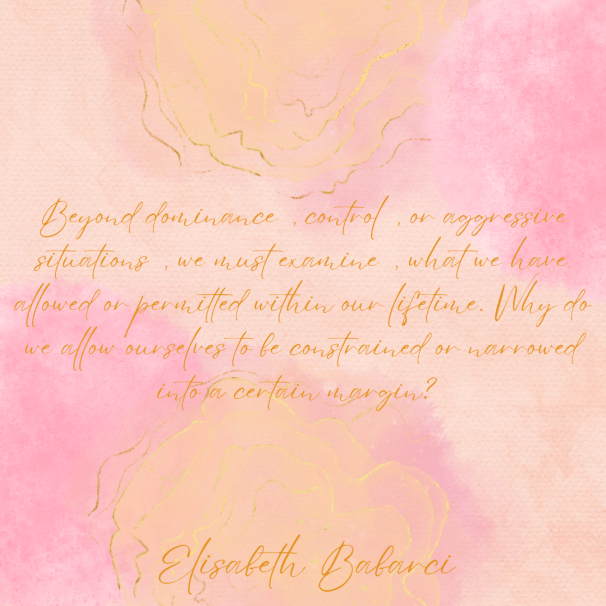 Beyond dominance , control , or aggressive
situations , we must examine , what we have
allowed or permitted within our lifetime. Why do
we allow ourselves to be constrained or narrowed
into a certain margin?
Elisabeth Babarci